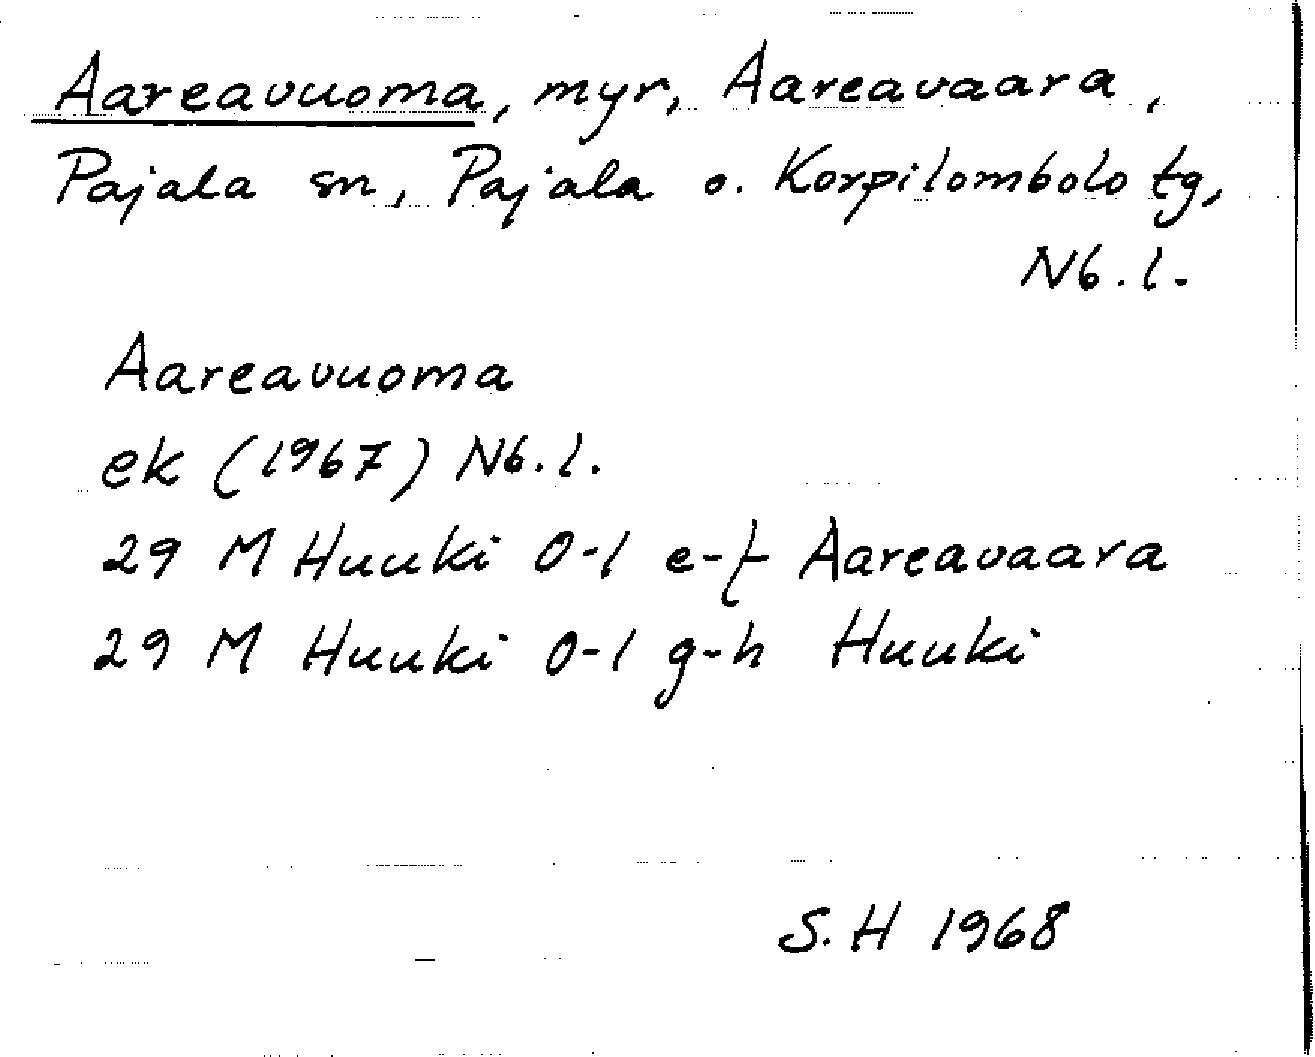 Aareavuoma, myr, Aareavaara,
Pajala sn, Pajala o. Korpilombolo tg,
Nb.l.
Aareavuoma
ek (1967) Nb.l.
29 M Huuki 0-1 e-f Aareavaara
29 M Huuki 0-1 g-h Huuki
S.H 1968